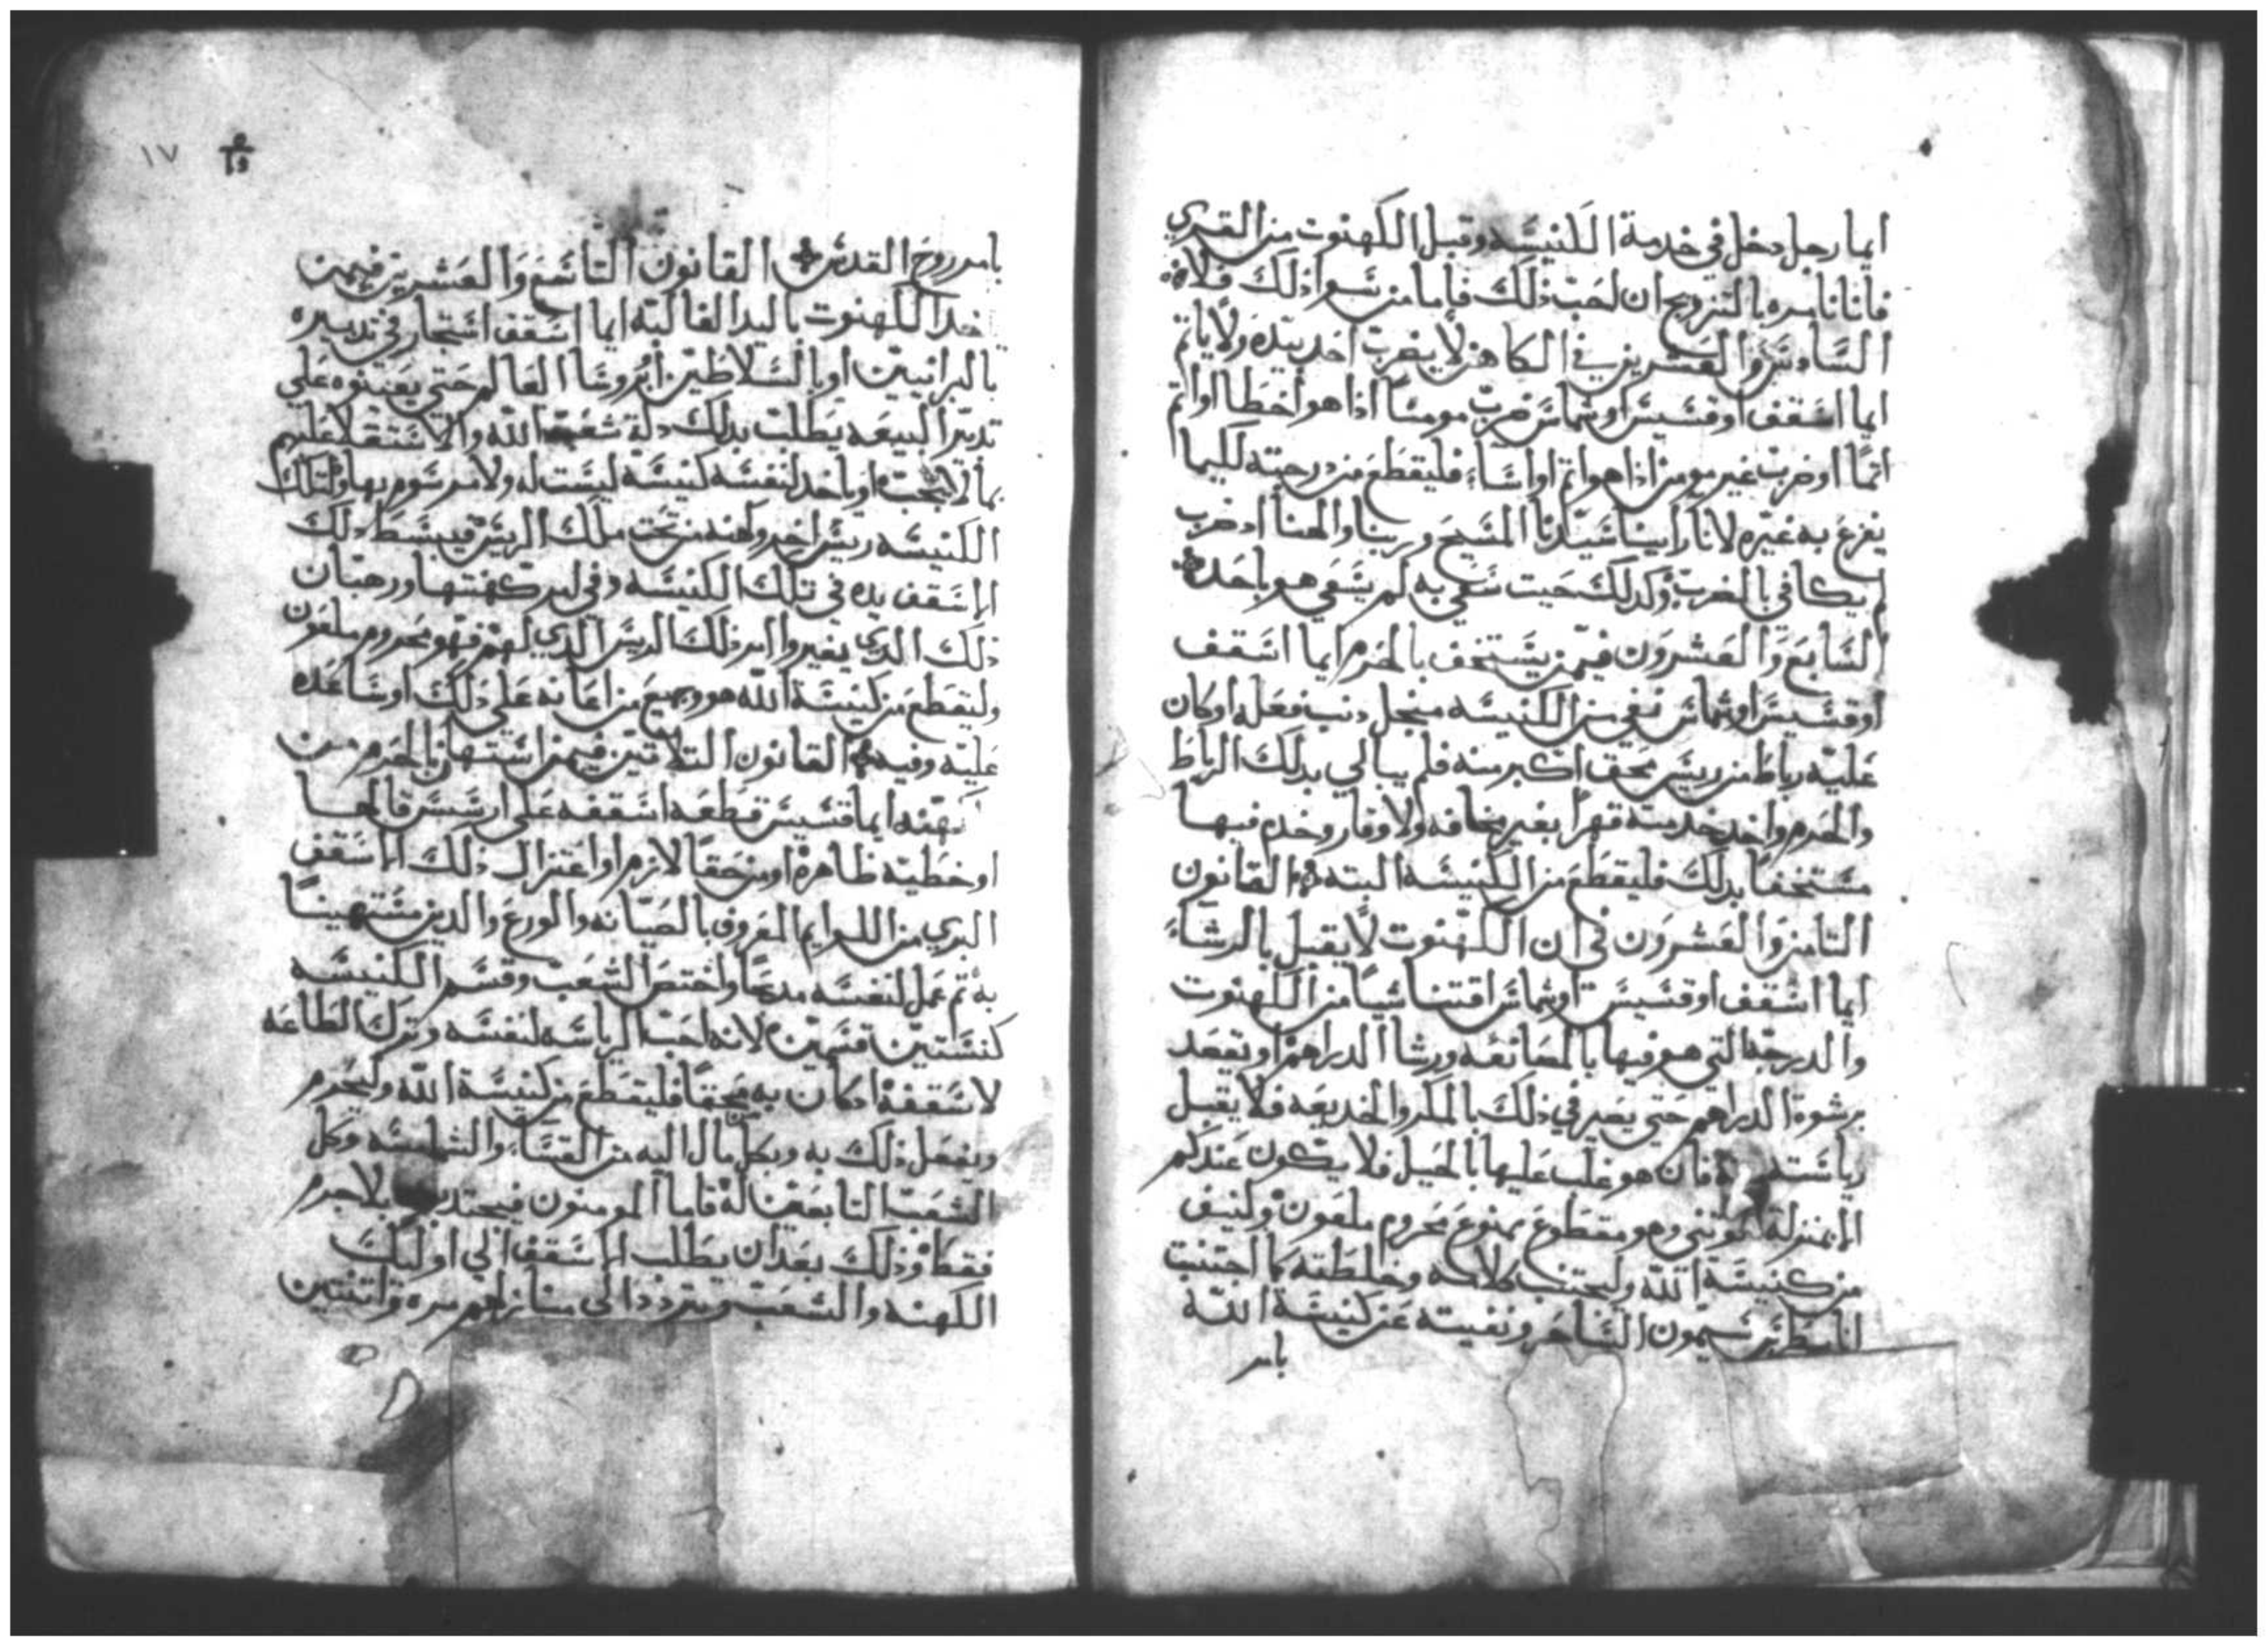 ايما رجل دخل في خدمة الكنيسه وقبل الكهنوت من القري
فانا نامره بالتزويج ان احب ذلك فاما من سوا ذلك فلا
السادس والعشرين في الكاهن لا يضرب احد بيده ولا ياتم
ايما اسقف او قسيس او شماس ضرب مومنا اذا هو اخطا او اتم
اتما او ضرب غير مومن اذا هو اتم او اسا فليقطع من درجته لكيما
يفزع به غيره لانا راينا سيدنا المسيح وربنا والهنا اد ضرب
لم يكافي بالضرب وكدلك حيت سعي به لم يسعي هو باحد
السابع والعشرون فيمن يستخف بالحرم ايما اسقف
او قسيس او شماس نفي من الكنيسه منجل دنب فعله او كان
عليه رباط من ريس محق اكبر منه فلم يبالي بدلك الرباط
والحرم واخد خدمته قهرا بغير مخافه ولا وقار وخدم فيها
مستخفا بدلك فليقطع من الكنيسه البته القانون
التامن والعشرون في ان الكهنوت لا يقبل بالرشاء
ايما اسقف او قسيس او شماس اقتنا شيا من الكهنوت
والدرجه التي هو فيها بالمصانعه ورشا الدراهم او تقصد
برشوة الدراهم حتي يصير في ذلك بالمكر والخديعه فلا يقبل
فان هو غلب عليها بالحيل فلا يكون عندكم
الا بمنزلة الوتني وهو مقطوع ممنوع محروم ملعون ولينف
من كنيسة الله وليجتنب كلامه وخلطته كما اجتنبت
انا بطرس سيمون الساحر ونفيته عن كنيسة الله
بامر
١٧
بامر روح القدس القانون التاسع والعشرين فيمن
اخد الكهنوت باليد الغالبه ايما اسقف استجار في تدبيره
بالبرانيين او بالسلاطين او بروسا العالم حتي يعينوه علي
تدبير البيعه يطلب بدلك دلة شعب الله والاستقلا عليهم
بما لا يجب او ياخد لنفسه كنيسه ليست له ولا مرسوم بها ولتلك
الكنيسه ريس اخر وكهنه من تحت ملك الريس فيبسط دلك
الاسقف يده في تلك الكنيسه وفي كهنتها ورهبان
ذلك الدي بغير وامر ذلك الريس الدي لهم فهو محروم ملعون
وليقطع من كنيسة الله هو وجميع من اعانه علي ذلك او ساعده
عليه وفيه القانون التلاتين فيمن استهان بالحرم من
كهنه ايما قسيس قطعه اسقفه علي
او خطيه ظاهره او من حقا لازم او اعتزال ذلك الاسقف
البري من اللوايم المعروف بالصيانه والورع والدين مستهينا
به تم عمل لنفسه مدبحا واختص الشعب وقسم الكنيسه
كنستين قسمين لانه احب الرياسه لنفسه وترك الطاعه
لاسقفه اد كان به محقا فليقطع من كنيسة الله وليحرم
ويفعل ذلك به وبكل من مال اليه من القسا والشمامسه وكل
الشعب التابعين له فاما المومنون بلا جرم
فقط وذلك بعد ان يطلب الاسقف الي اوليك
الكهنه والشعب ويتردد الي منازلهم مره واتنتين